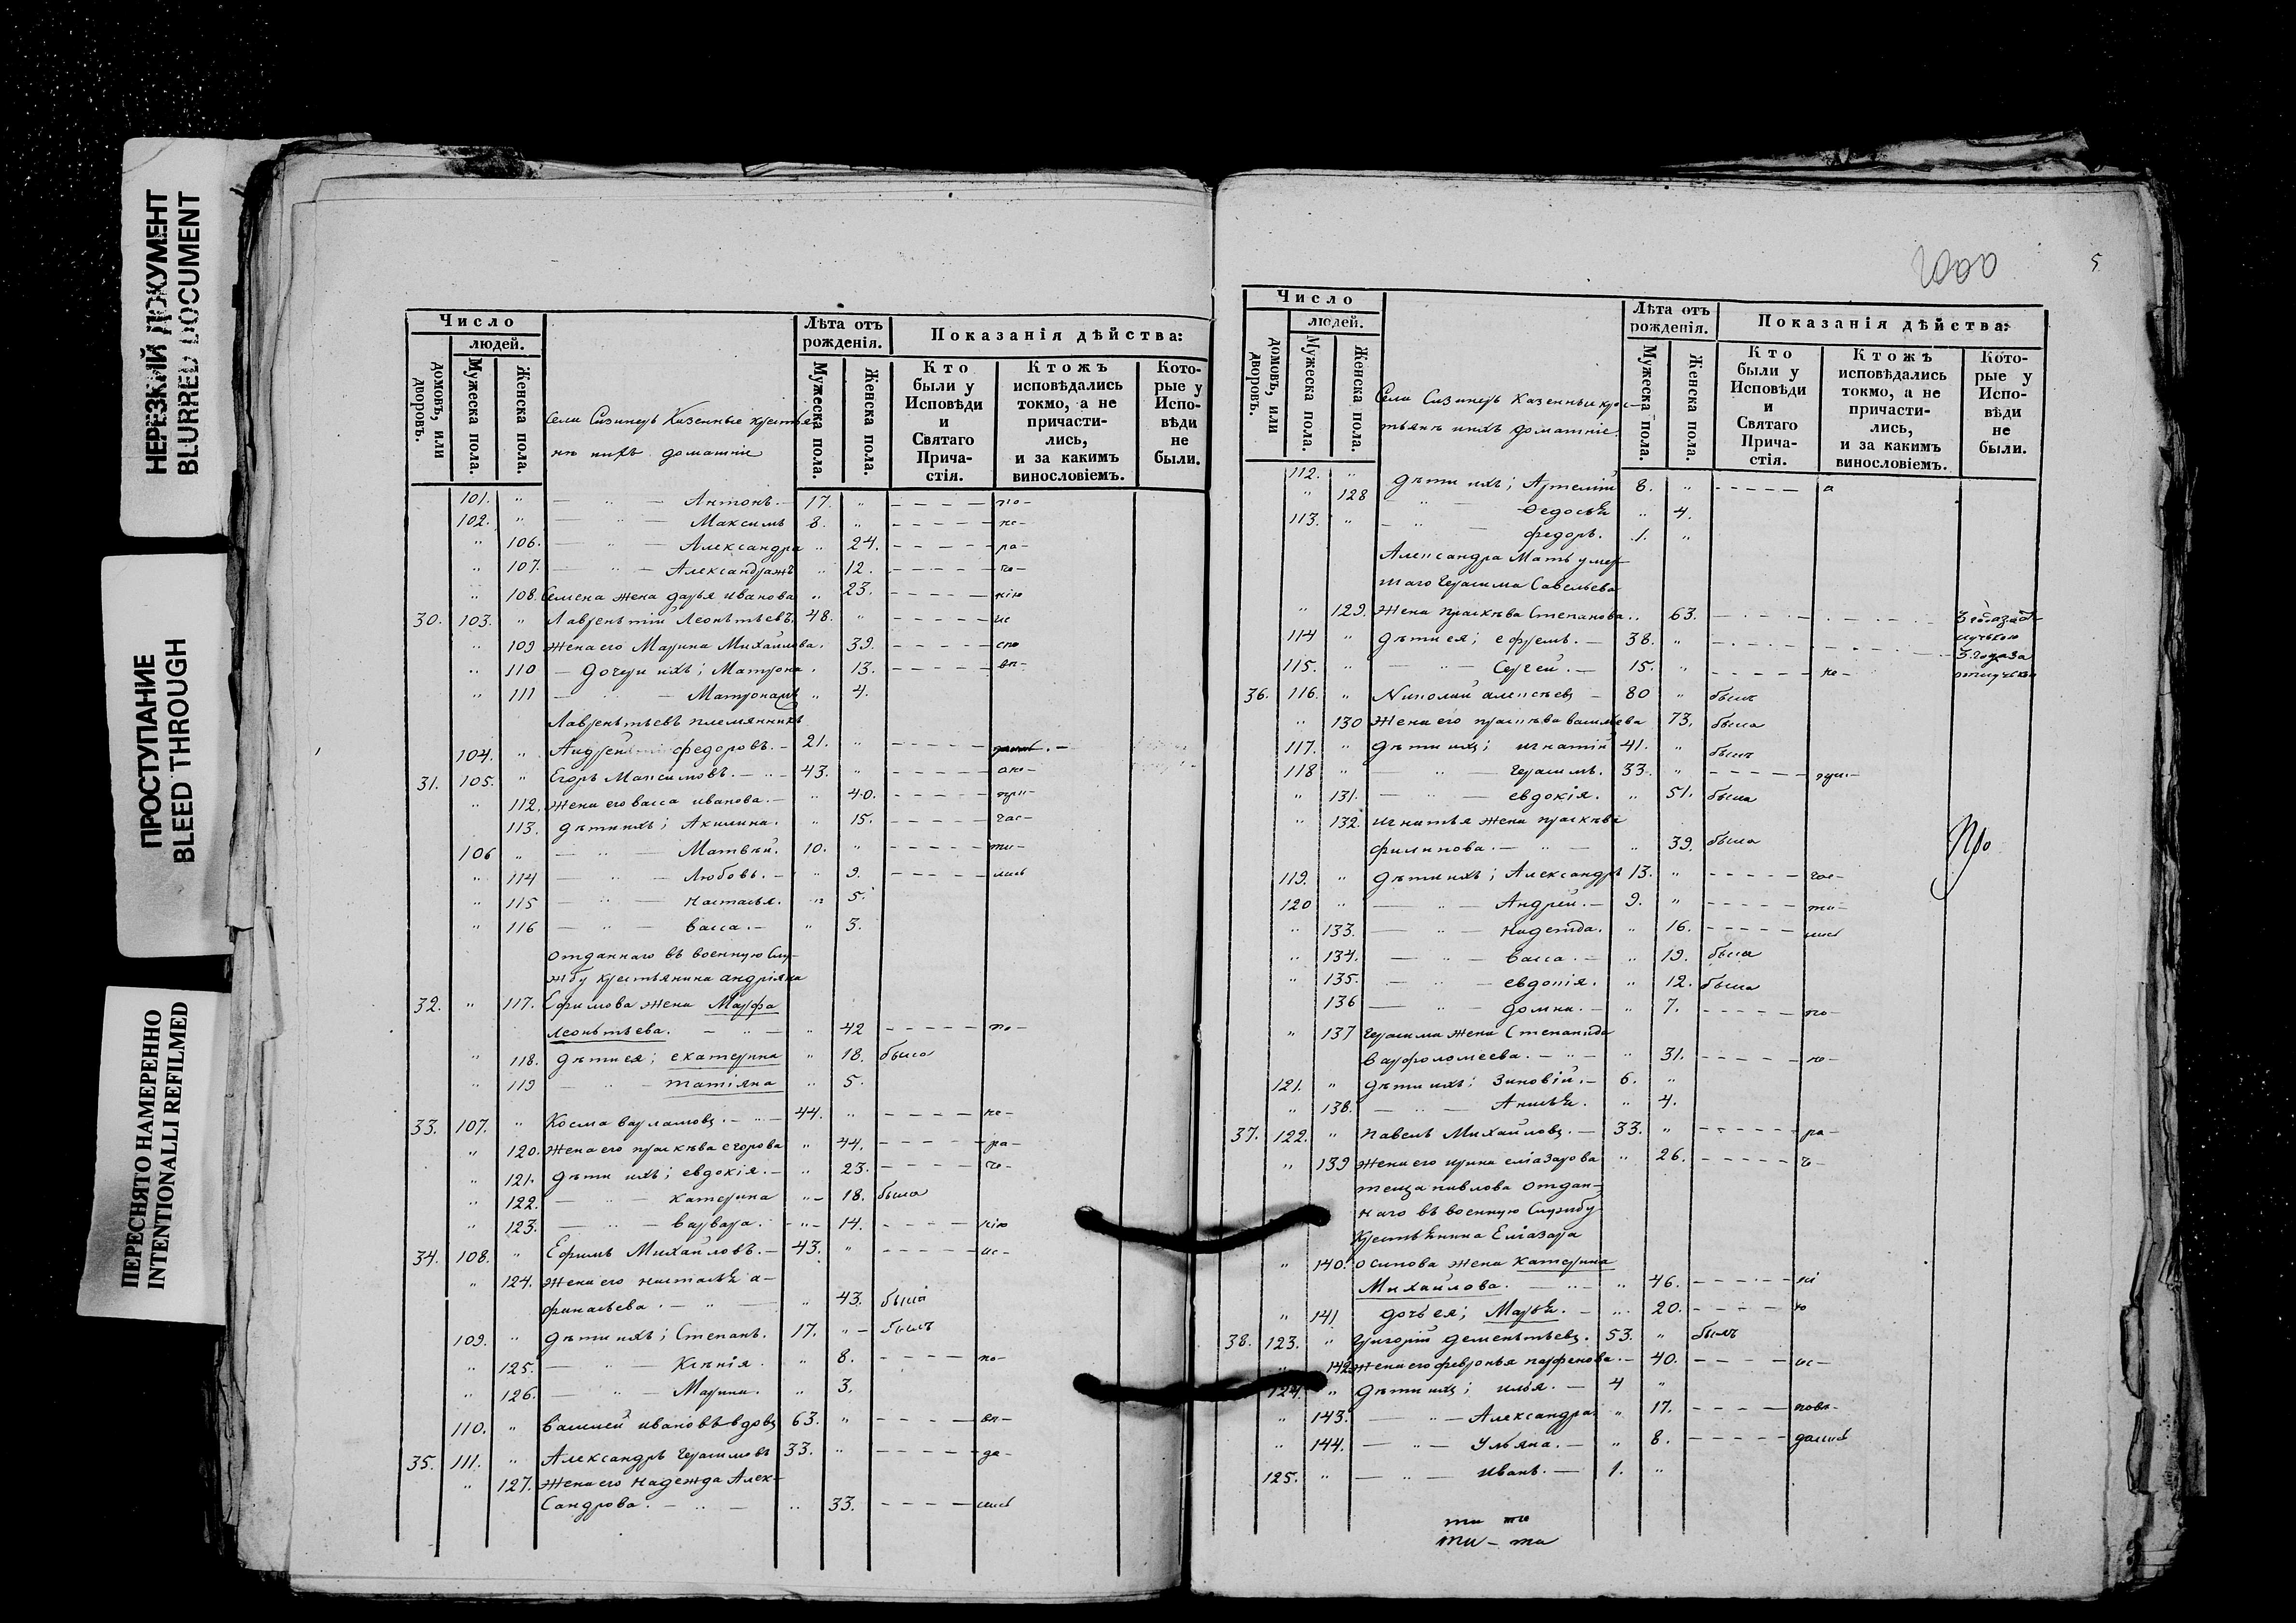 НЕРЕЗКИЙ ДОКУМЕНТ
BLURRED DOCUMENT
ПРОСТУПАНИЕ
BLEED THROUGH
ПЕРЕСНЯТО НАМЕРЕННО
INTENTIONALLI REFILMED
Число
людей.
домовъ, или дворовъ.
Мужеска пола.
Женска пола.
Села Сизинеръ Казенные крестья
нѣ ихъ домашніе
Лѣта отъ рожденія.
Мужеска пола.
Женска пола.
Показанія дѣйства:
Кто были у Исповѣди и Святаго Прича- стія.
Ктожъ исповѣдались токмо, а не причасти- лись, и за какимъ винословіемъ.
Кото- рые у Испо- вѣди не были.
101. " — " — Антонъ. — 17. " - - - - по-
102. " — " — Максимъ 8. " - - - - не-
" 106. — " — Александра " 24. - - - - ра-
" 107. — " — Александра " 12. - - - - че-
" 108. Семена жена дарья иванова " 23. - - - - нію
30. 103. " Лаврентій Леонтьевъ. 48. " - - - - ис
" 109 жена его Марина Михайлова. 39. - - - - спо
" 110 — дочери ихъ; Матрона. 13. - - - - вѣ-
" 111 — " — Матрона " 4.
Лаврентьевъ племянникъ
104. " Андрей федоровъ. — 21. " - - - -
31. 105. " Егоръ Максимовъ. — " — 43. " - - - - ане-
" 112. жена его васса иванова. — " 40. - - - - при-
113. дѣти ихъ; Акилина. " 15. - - - - час-
106 " — " — Матвѣй. 10. " - - - - ти-
" 114 — " — Любовь. — " 9. - - - - лись
" 115 — " — настасья. " 5.
" 116 — " — васса. — " 3.
отданнаго въ военную Слу-
жбу крестьянина андріяна
32. " 117. Ефимова жена Марфа
Леонтьева. — " — " 42 - - - - по-
" 118. дѣти ея; екатерина " 18. была
" 119 — " — татіяна " 5.
33. 107. " Косма варламовъ. — " — 44. " - - - - не-
" 120. жена его прасковья егорова " 44. - - - - ра-
" 121. дѣти ихъ; евдокія. — " 23. - - - - че-
" 122. — " — катерина " — 18. была
" 123. — " — варвара. — " — 14. - - - - нію
34. 108. " Ефимъ Михайловъ. — 43. " - - - - ис-
" 124. жена его настасья а-
финасьева. — " — " 43. была
109. " дѣти ихъ; Степанъ. 17. " — былъ
" 125. — " — Ксенія. " 8. - - - - по-
" 126. — " — Марина. " 3.
110. " василей ивановъ вдовъ 63. " - - - - вѣ-
35. 111. " Александръ Герасимовъ 33. " - - - - да-
" 127. жена его надежда Алек-
сандрова. — " — " 33. - - - - лись
2000
5
Число
людей.
домовъ, или дворовъ.
Мужеска пола.
Женска пола.
Села Сизинеръ Казенные крес-
тьянѣ ихъ домашніе.
Лѣта отъ рожденія.
Мужеска пола.
Женска пола.
Показанія дѣйства:
Кто были у Исповѣди и Святаго Прича- стія.
Ктожъ исповѣдались токмо, а не причасти- лись, и за какимъ винословіемъ.
Кото- рые у Испо- вѣди не были.
112. " дѣти ихъ; Артемій 8. " - - - - а
" 128 — Федосья " 4.
113. " — " — федоръ. 1. "
Александра Мать умер-
шаго Герасима Савельева
" 129. жена прасковья Степанова. " 63.
114 " дѣти ея; ефремъ. — 38. "
115. " — " — Сергей. — 15. " - - - - не-
36. 116. " Николай алексѣевъ — 80 " былъ
" 130 жена его прасковья васильева 73. была
117. " дѣти ихъ; игнатій 41. " былъ
118 " — " — Герасимъ. 33. " - - - - при-
" 131. — " — евдокія. " 51. была
" 132. игнатья жена прасковья
филипова. — " — " 39. была
Про
119. " дѣти ихъ; Александръ 13. " - - - - час-
120 " — " — Андрей. — 9. " - - - - ти-
" 133. — " — надежда. " 16. - - - - лись
" 134. — " — васса. — " 19. была
" 135. — " — евдокія. " 12. была
136 — " — домна. — " 7. - - - - по-
" 137 Герасима жена Степанида
варфоломеева. — " — " 31. - - - - не-
121. " дѣти ихъ; Зиновій. — 6. "
" 138. — " — Анисья. " 4.
37. 122. " Павелъ Михайловъ. — 33. " - - - - ра-
" 139 жена его ирина еліазарова " 26. - - - - ч-
теща павлова отдан-
наго въ военную Службу
Крестьянина Еліазара
" 140. осипова жена катерина
Михайлова. — " — " 46. - - - - ні
" 141 дочь ея; Марья. — " 20. - - - - ю
38. 123. " Григорій дементьевъ. 53. " былъ
" 142 жена его февронья парфенова. — 40. - - - - ис-
124. " дѣти ихъ; илья. — 4 "
" 143. " — Александра " 17. - - - - повѣ-
" 144. — " — Ульяна. — " 8. - - - - дались
125. " — " — иванъ. — 1. "